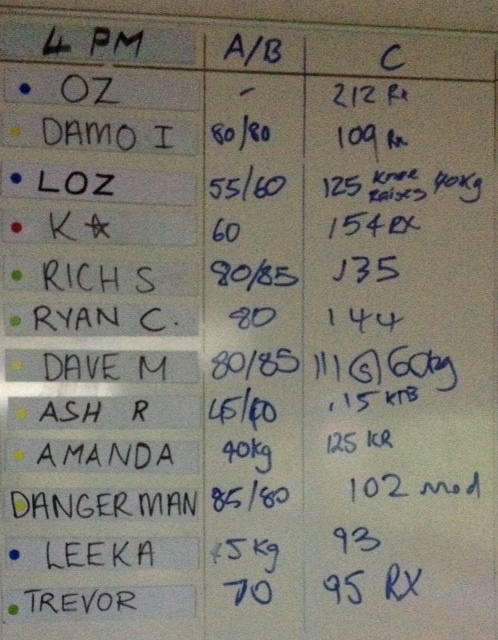 4 PM A/B C
OZ - 212 Rx
DAMO I 80/80 109 Rx
LOZ 55/60 125 knee raises 40kg
K☆ 60 154 RX
RICH S 80/85 135
RYAN C. 80 144
DAVE M 80/85 111 (S) 60kg
ASH R 45/40 115 KTB
AMANDA 40kg 125 KR
DANGERMAN 85/80 102 mod
LEEKA 45kg 93
TREVOR 70 95 RX